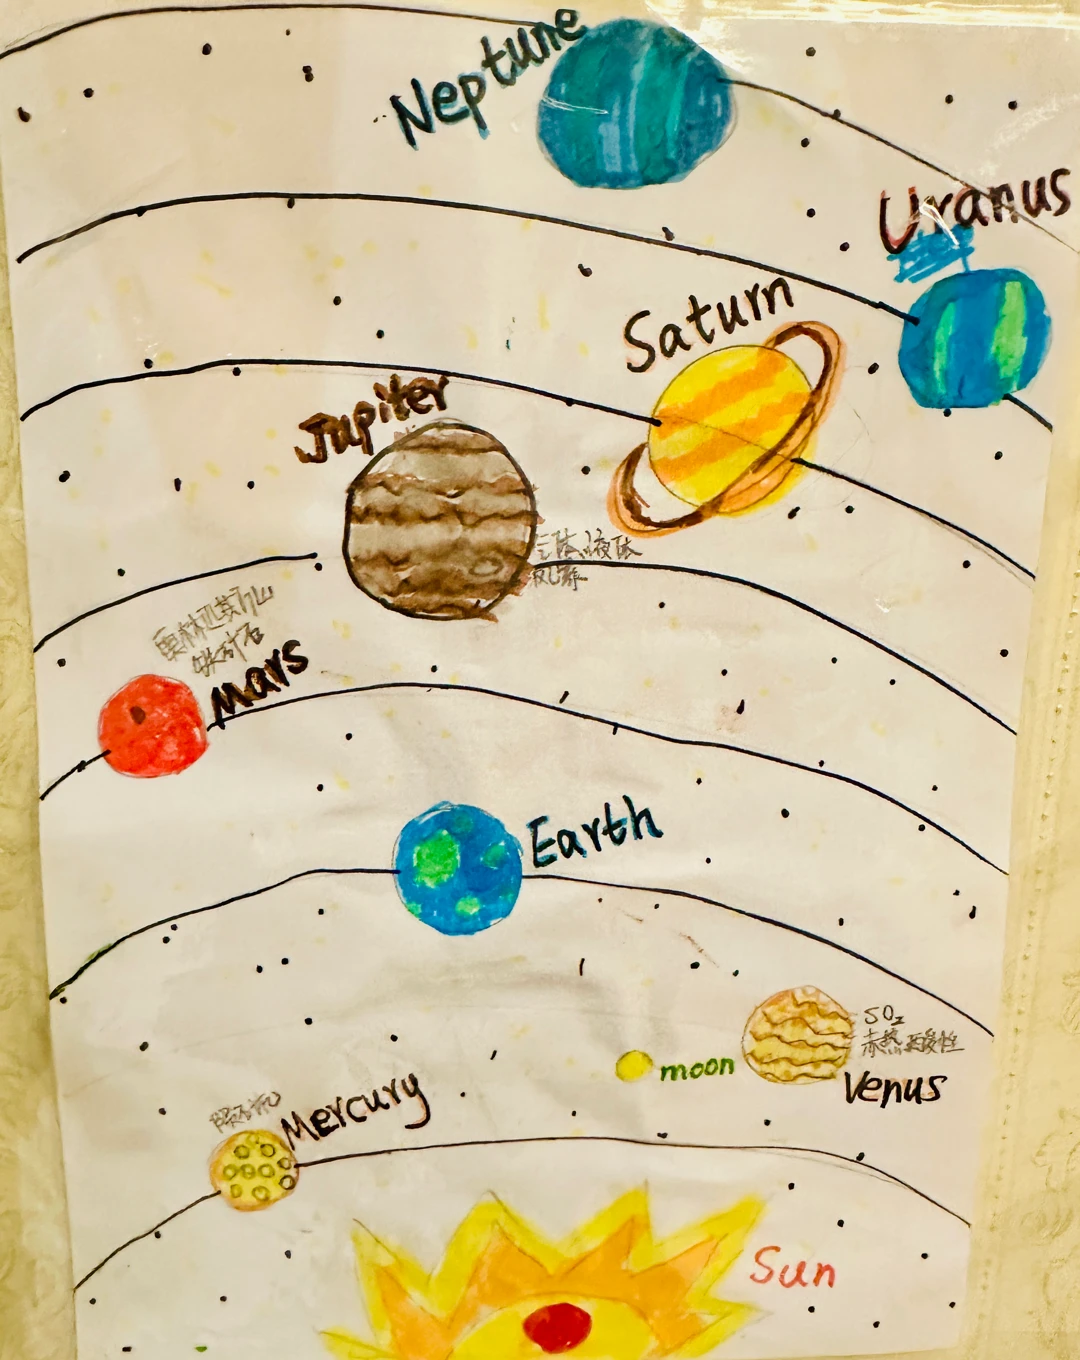 Neptune
Uranus
Saturn
Jupiter
气体、液体
奥林匹斯火山
铁矿石
Mars
Earth
SO₂
炎热 酸性
moon
Venus
陨石坑
Mercury
Sun